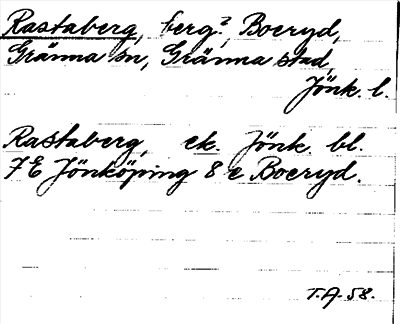 Rastaberg, berg?, Boeryd,
Gränna sn, Gränna stad,
Jönk. l.
Rastaberg, ek. Jönk. bl.
7E Jönköping 8 e Boeryd.
T.A. 58.